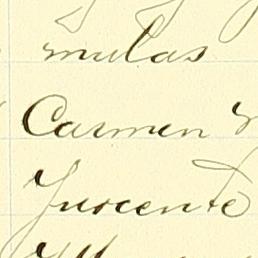 mulas
Carmen
Inocente